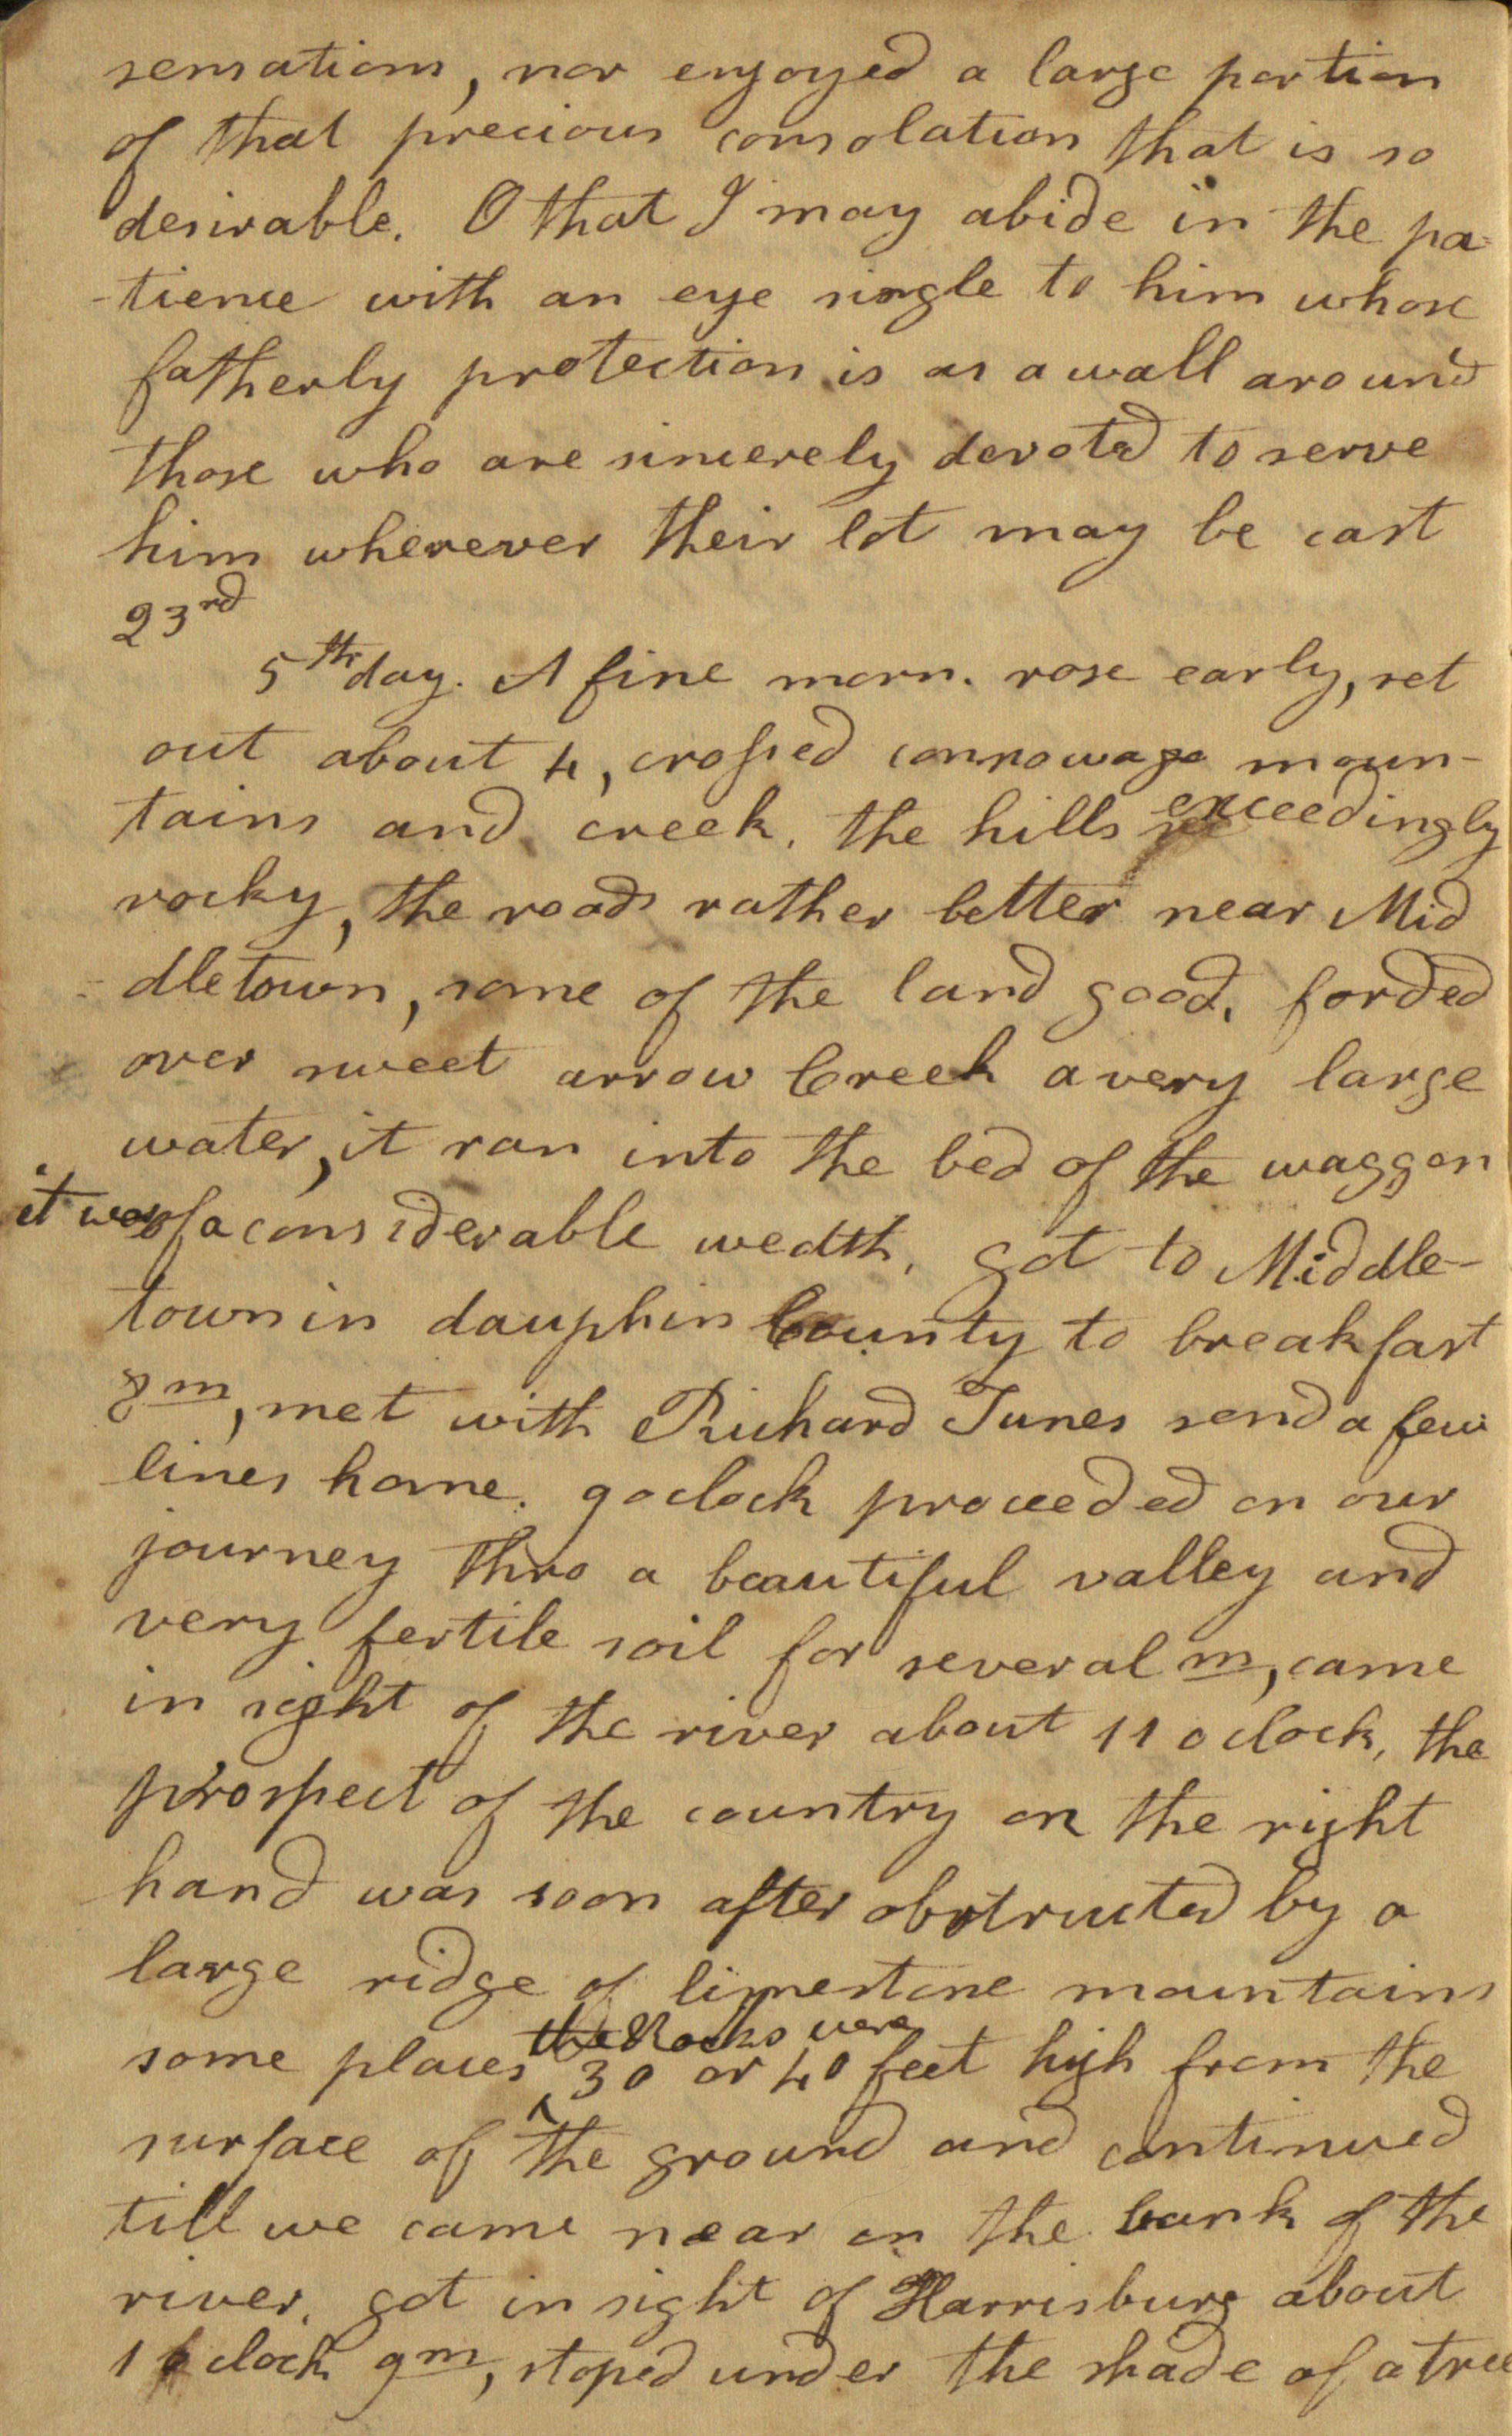 sensations, nor enjoyed a large portion
of that precious consolation that is so
desirable. O that I may abide in the pa-
-tience with an eye single to him whose
fatherly protection is as a wall around
those who are sincerely devoted to serve
him wherever their lot may be cast
23rd
5th day. A fine morn. rose early, set
out about 4, crossed connowago moun-
tains and creek. the hills exceedingly
rocky, the roads rather better near Mid
-dletown, some of the land good. forded
over sweet arrow Creek a very large
water, it ran into the bed of the waggon
it was of a considerable wedth. got to Middle-
town in dauphin County to breakfast
8 m, met with Richard Tunes send a few
lines home. 9 oclock proceeded on our
journey thro a beautiful valley and
very fertile soil for several m, came
in sight of the river about 11 oclock, the
prospect of the country on the right
hand was soon after obstructed by a
large ridge of limestone mountains
the Rocks were
some places ^ 30 or 40 feet high from the
surface of the ground and continued
till we came near on the bank of the
river. got in sight of Harrisburg about
1 oclock 9 m, stoped under the shade of a tree